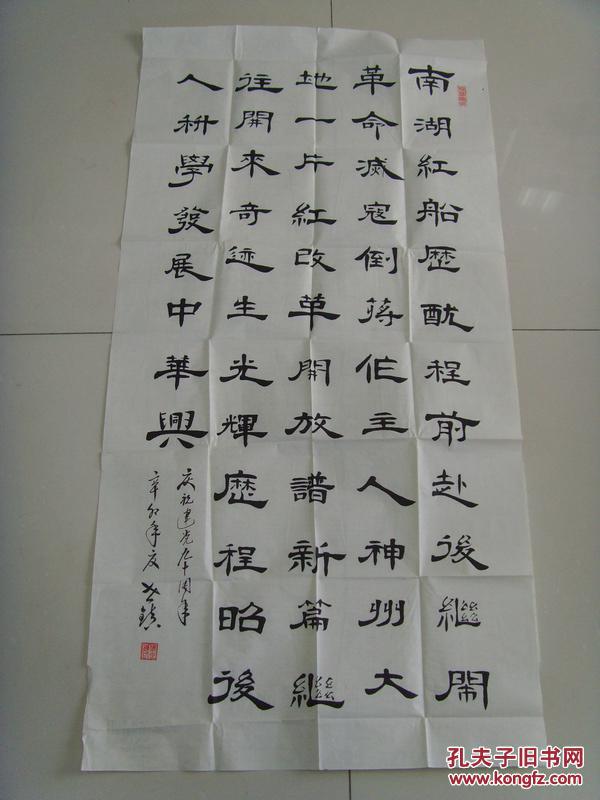 南湖紅船歷航程前赴後繼鬧
革命滅寇倒蔣作主人神州大
地一片紅改革開放譜新篇繼
往開來奇迹生光輝歷程昭後
人科學發展中華興
庆祝建党九十周年
辛卯年夏
孔夫子旧书网
www.kongfz.com